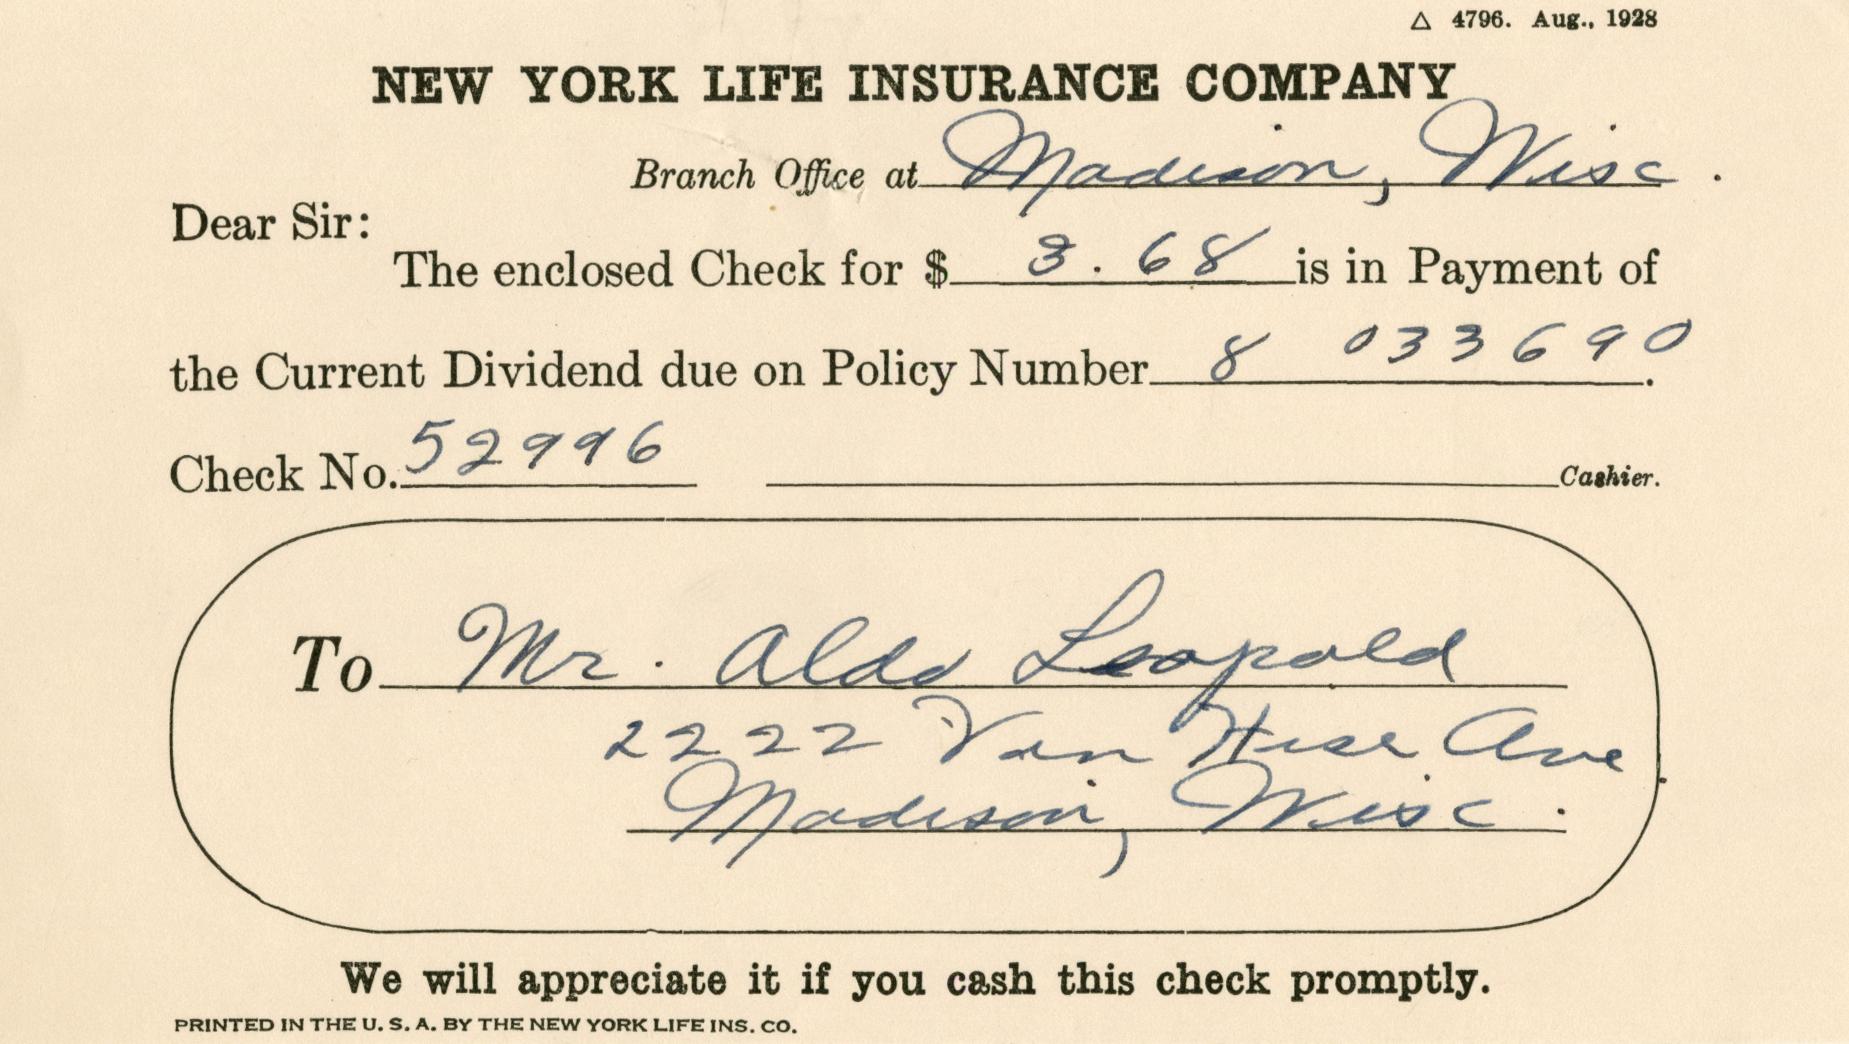 △ 4796. Aug., 1928
NEW YORK LIFE INSURANCE COMPANY
Branch Office at Madison, Wisc.
Dear Sir:
The enclosed Check for $ 3.68 is in Payment of
the Current Dividend due on Policy Number 8 033690.
Check No. 52996 Cashier.
To Mr. Aldo Leopold
2222 Van Hise Ave
Madison, Wisc.
We will appreciate it if you cash this check promptly.
PRINTED IN THE U. S. A. BY THE NEW YORK LIFE INS. CO.